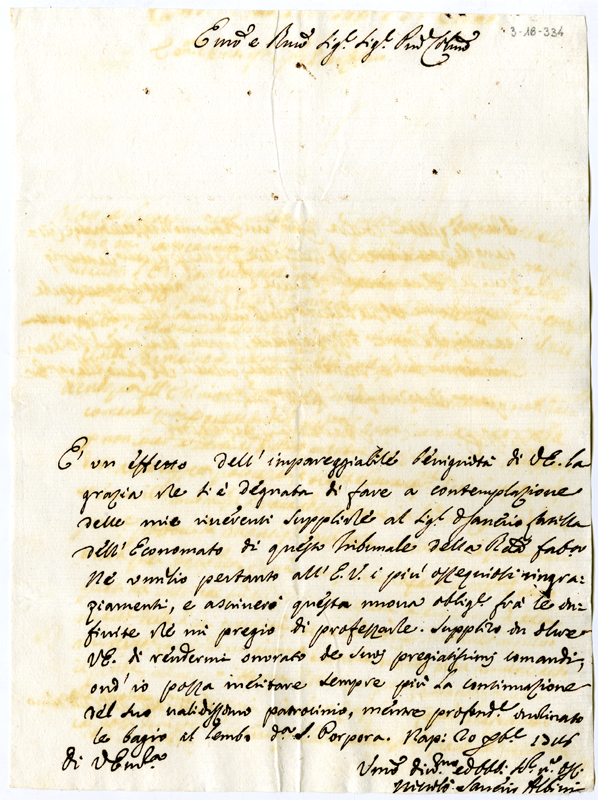 Emõ e Rmõ Sig.r Sig.r Pñe Colmõ
3-18-334
E' un effetto dell'impareggiabile benignità di VE. la
grazia che si è degnata di fare a contemplazione
delle mie riverenti suppliche al Sig.r D Saverio
dell'Economato di questo Tribunale della R. Fabca
Ne umilio pertanto all'E.V. i più ossequiosi ringra-
ziamenti, e ascriverò questa nuova obligne frà le in-
finite che mi pregio di professarle. Supplico in oltre
VE. di rendermi onorato de suoi pregiatissimi comandi,
ond'io possa meritare sempre più la continuazione
del suo validissimo patrocinio, mentre profond.e inclinato
le bagio il lembo d.a S. Porpora. Nap: 20 Xbre
di VEm.a
Umo div.mo ed obb. s.re
Nicolò Saverio Albini